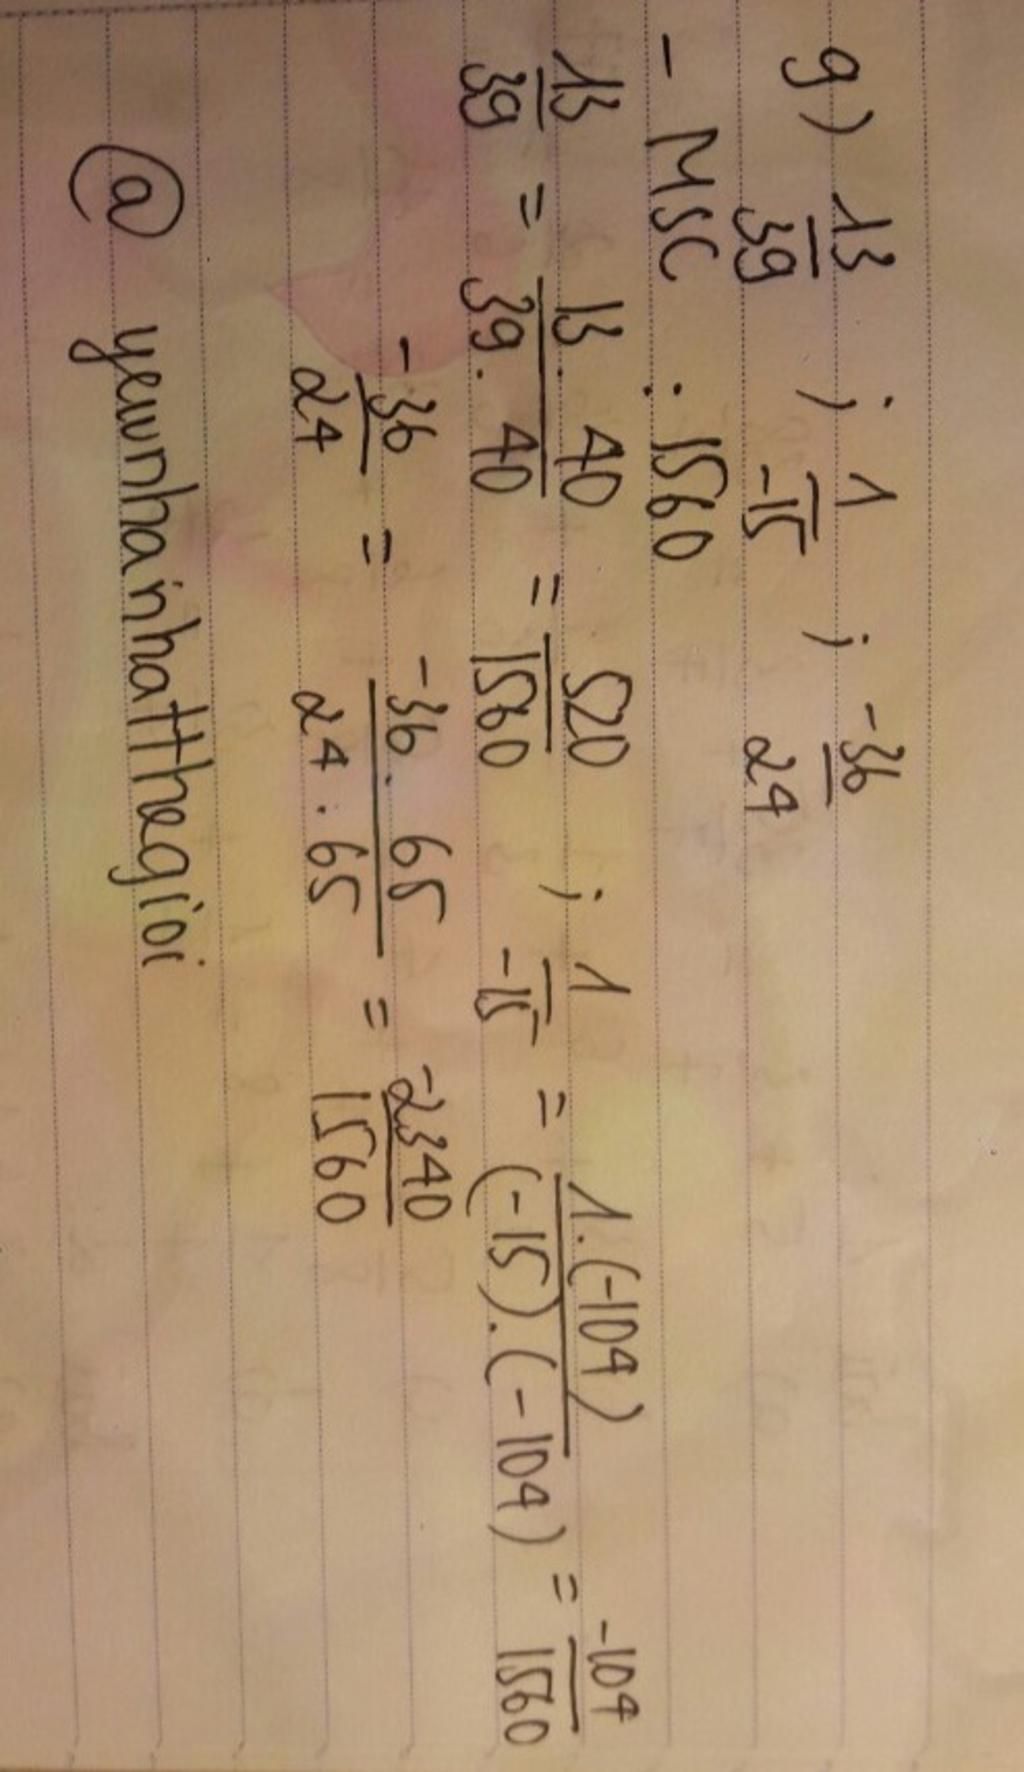 g) 13/39 ; 1/-15 ; -36/24
- MSC : 1560
13/39 = 13. 40/39. 40 = 520/1560 ; 1/-15 = 1.(-104)/(-15).(-104) = -104/1560
-36/24 = -36. 65/24 . 65 = -2340/1560
@ yeunhainhatthegioi